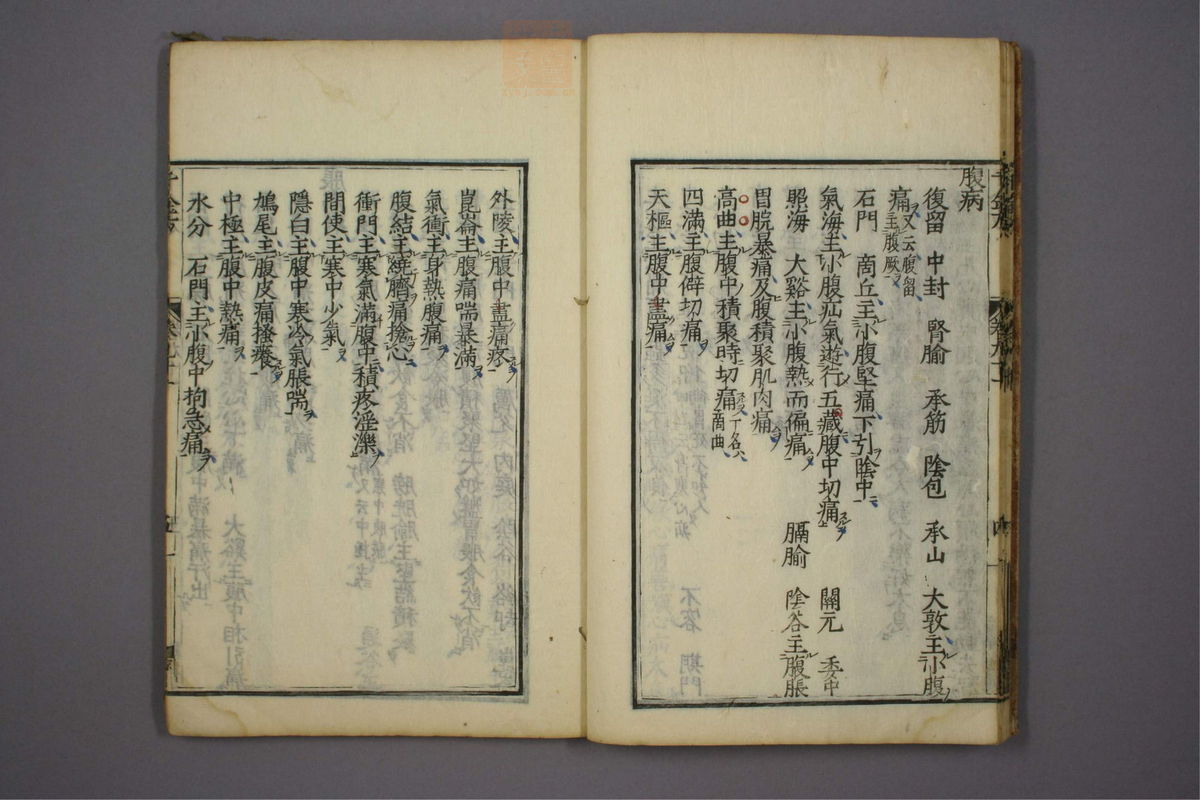 腹病
復留 中封 腎腧 承筋 陰包 承山 大敦主小腹
痛又云腹留主腹厥
石門 商丘主小腹堅痛下引陰中
氣海主小腹疝氣遊行五藏腹中切痛 關元 委中
照海 大谿主小腹熱而偏痛 膈腧 陰谷主腹脹
胃脘暴痛及腹積聚肌肉痛
高曲主腹中積聚時切痛一名商曲
四滿主腹僻切痛
天樞主腹中盡痛
外陵主腹中盡痛疼
崑崙主腹痛喘暴滿
氣衝主身熱腹痛
腹結主繞臍痛搶心
衝門主寒氣滿腹中積疼淫濼
間使主寒中少氣
隱白主腹中寒冷氣脹喘
鳩尾主腹皮痛搔癢
中極主腹中熱痛
水分 石門主小腹中拘急痛